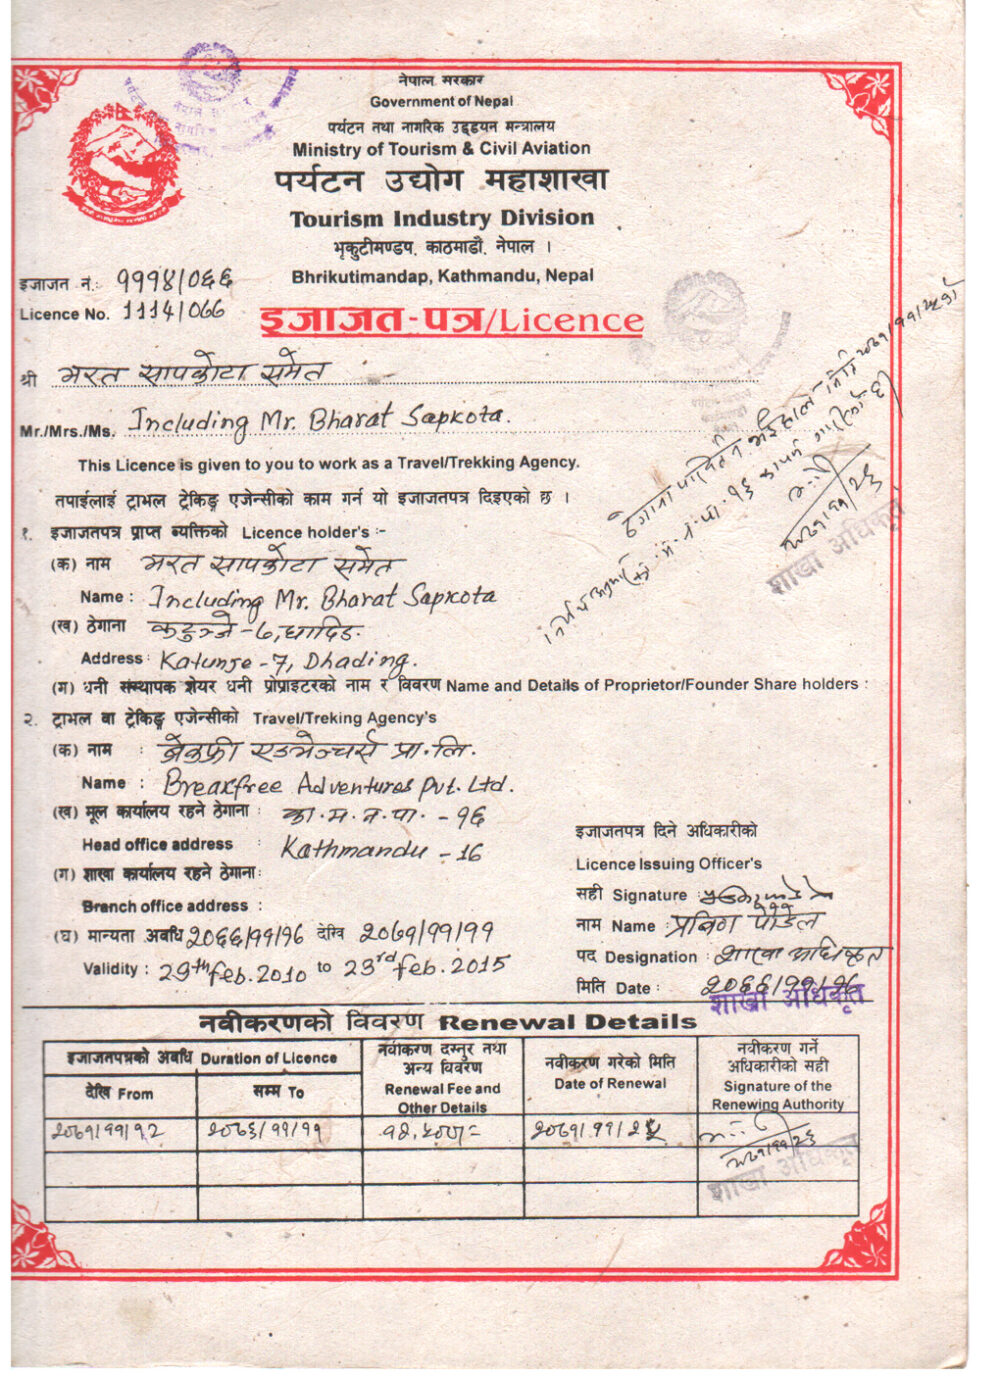 नेपाल सरकार
Government of Nepal
पर्यटन तथा नागरिक उड्डयन मन्त्रालय
Ministry of Tourism & Civil Aviation
पर्यटन उद्योग महाशाखा
Tourism Industry Division
भृकुटीमण्डप, काठमाडौं, नेपाल ।
Bhrikutimandap, Kathmandu, Nepal
इजाजत नं. १११४/०६६
Licence No. 1114/066
इजाजत-पत्र/Licence
श्री भरत सापकोटा समेत
Mr./Mrs./Ms. Including Mr. Bharat Sapkota.
This Licence is given to you to work as a Travel/Trekking Agency.
तपाईलाई ट्राभल ट्रेकिङ्ग एजेन्सीको काम गर्न यो इजाजतपत्र दिइएको छ ।
१. इजाजतपत्र प्राप्त ब्यक्तिको Licence holder's :-
(क) नाम भरत सापकोटा समेत
Name : Including Mr. Bharat Sapkota
(ख) ठेगाना कटुञ्जे -७, धादिङ.
Address : Katunje -7, Dhading.
(ग) धनी संस्थापक शेयर धनी प्रोप्राइटरको नाम र विवरण Name and Details of Proprietor/Founder Share holders :
२. ट्राभल वा ट्रेकिङ्ग एजेन्सीको Travel/Treking Agency's
(क) नाम : ब्रेकफ्री एडभेञ्चर्स प्रा.लि.
Name : Breakfree Adventures Pvt. Ltd.
(ख) मूल कार्यालय रहने ठेगाना : का.म.न.पा. -१६
Head office address : Kathmandu -16
(ग) शाखा कार्यालय रहने ठेगाना :
Branch office address :
(घ) मान्यता अवधि २०६६/११/१६ देखि २०७१/११/११
Validity : 29th feb. 2010 to 23rd feb. 2015
इजाजतपत्र दिने अधिकारीको
Licence Issuing Officer's
सही Signature :
नाम Name : प्रविण पौडेल
पद Designation : शाखा अधिकृत
मिति Date : २०६६/११/१६
शाखा अधिकृत
ठेगाना परिवर्तन
शाखा अधिकृत
नवीकरणको विवरण Renewal Details
इजाजतपत्रको अवधि Duration of Licence
देखि From
सम्म To
नवीकरण दस्तुर तथा
अन्य विवरण
Renewal Fee and
Other Details
नवीकरण गरेको मिति
Date of Renewal
नवीकरण गर्ने
अधिकारीको सही
Signature of the
Renewing Authority
२०७१/११/१२ २०७६/११/११
२०७१/११/२५
२०७१/११/२६
शाखा अधिकृत